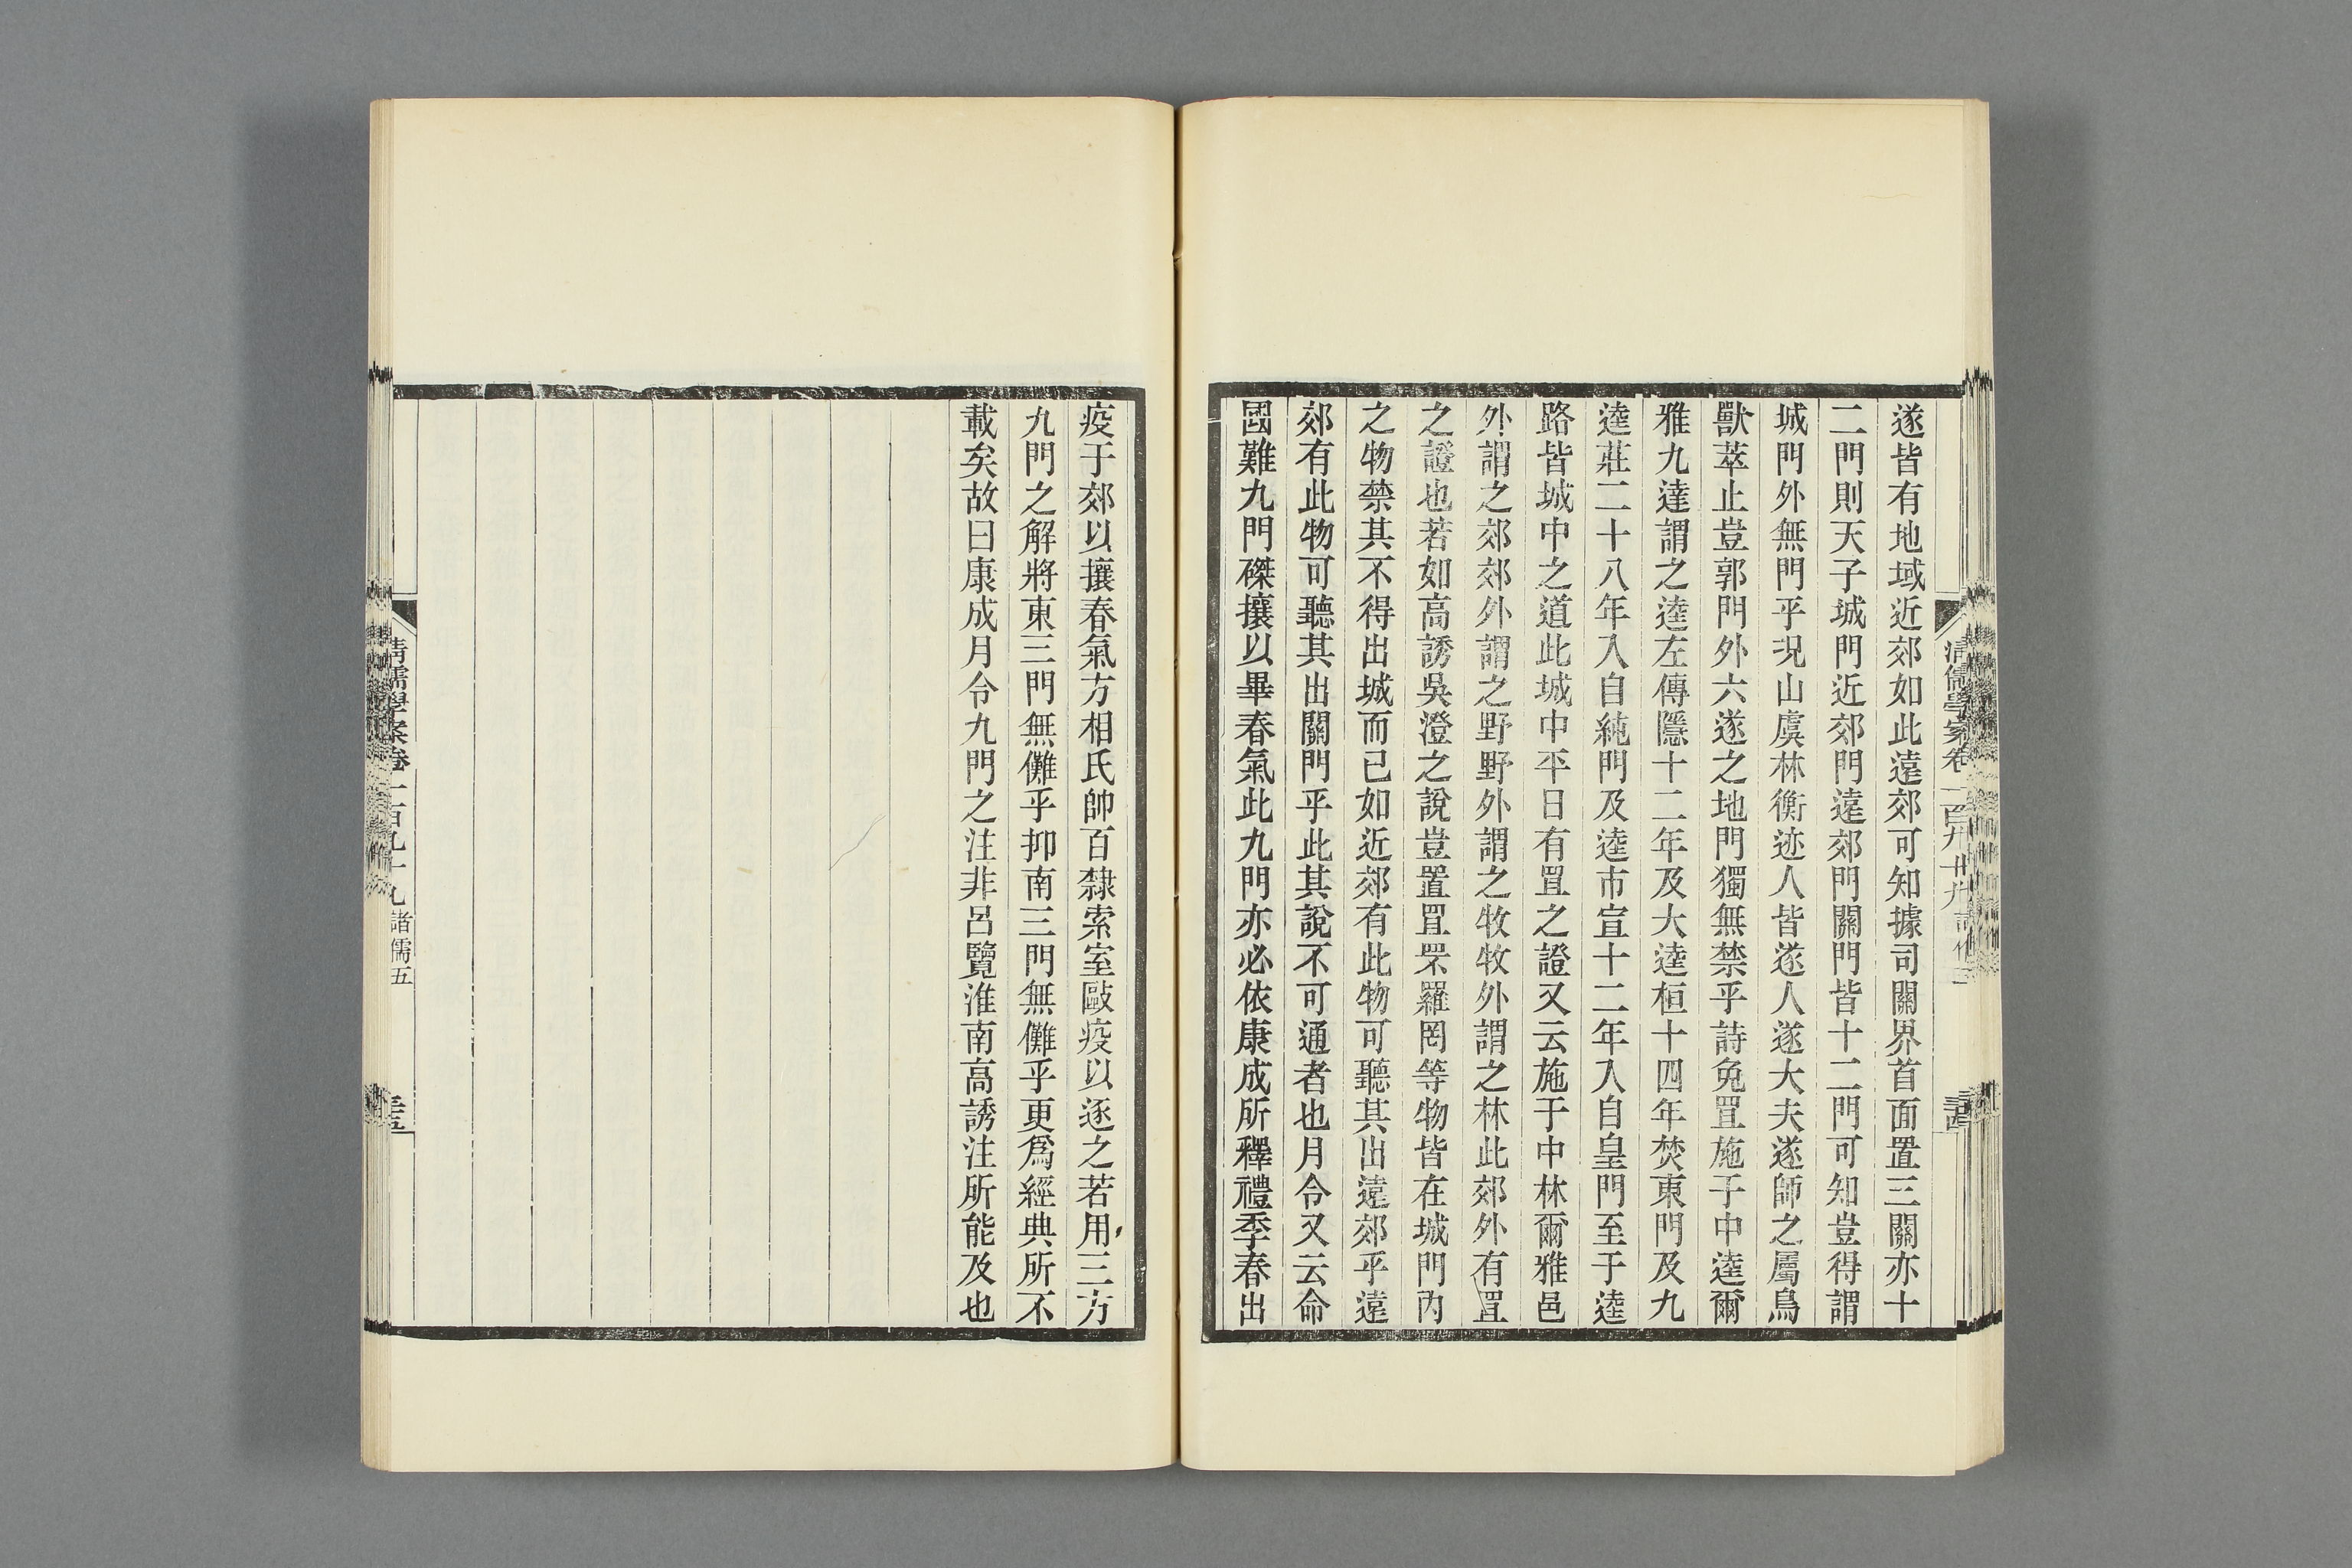 遂皆有地域近郊如此遠郊可知據司關界首面置三關亦十
二門則天子城門近郊門遠郊門關門皆十二門可知豈得謂
城門外無門乎況山虞林衡迹人皆遂人遂大夫遂師之屬鳥
獸萃止豈郭門外六遂之地門獨無禁乎詩兔罝施于中逵爾
雅九達謂之逵左傳隱十二年及大逵桓十四年焚東門及九
逵莊二十八年入自純門及逵市宣十二年入自皇門至于逵
路皆城中之道此城中平日有罝之證又云施于中林爾雅邑
外謂之郊郊外謂之野野外謂之牧牧外謂之林此郊外有罝
之證也若如高誘吳澄之說豈置罝罘羅罔等物皆在城門內
之物禁其不得出城而已如近郊有此物可聽其出遠郊乎遠
郊有此物可聽其出關門乎此其說不可通者也月令又云命
國難九門磔攘以畢春氣此九門亦必依康成所釋禮季春出
疫于郊以攘春氣方相氏帥百隸索室毆疫以逐之若用三方
九門之解將東三門無儺乎抑南三門無儺乎更爲經典所不
載矣故曰康成月令九門之注非呂覽淮南高誘注所能及也
清儒學案卷一百九十九 諸儒五